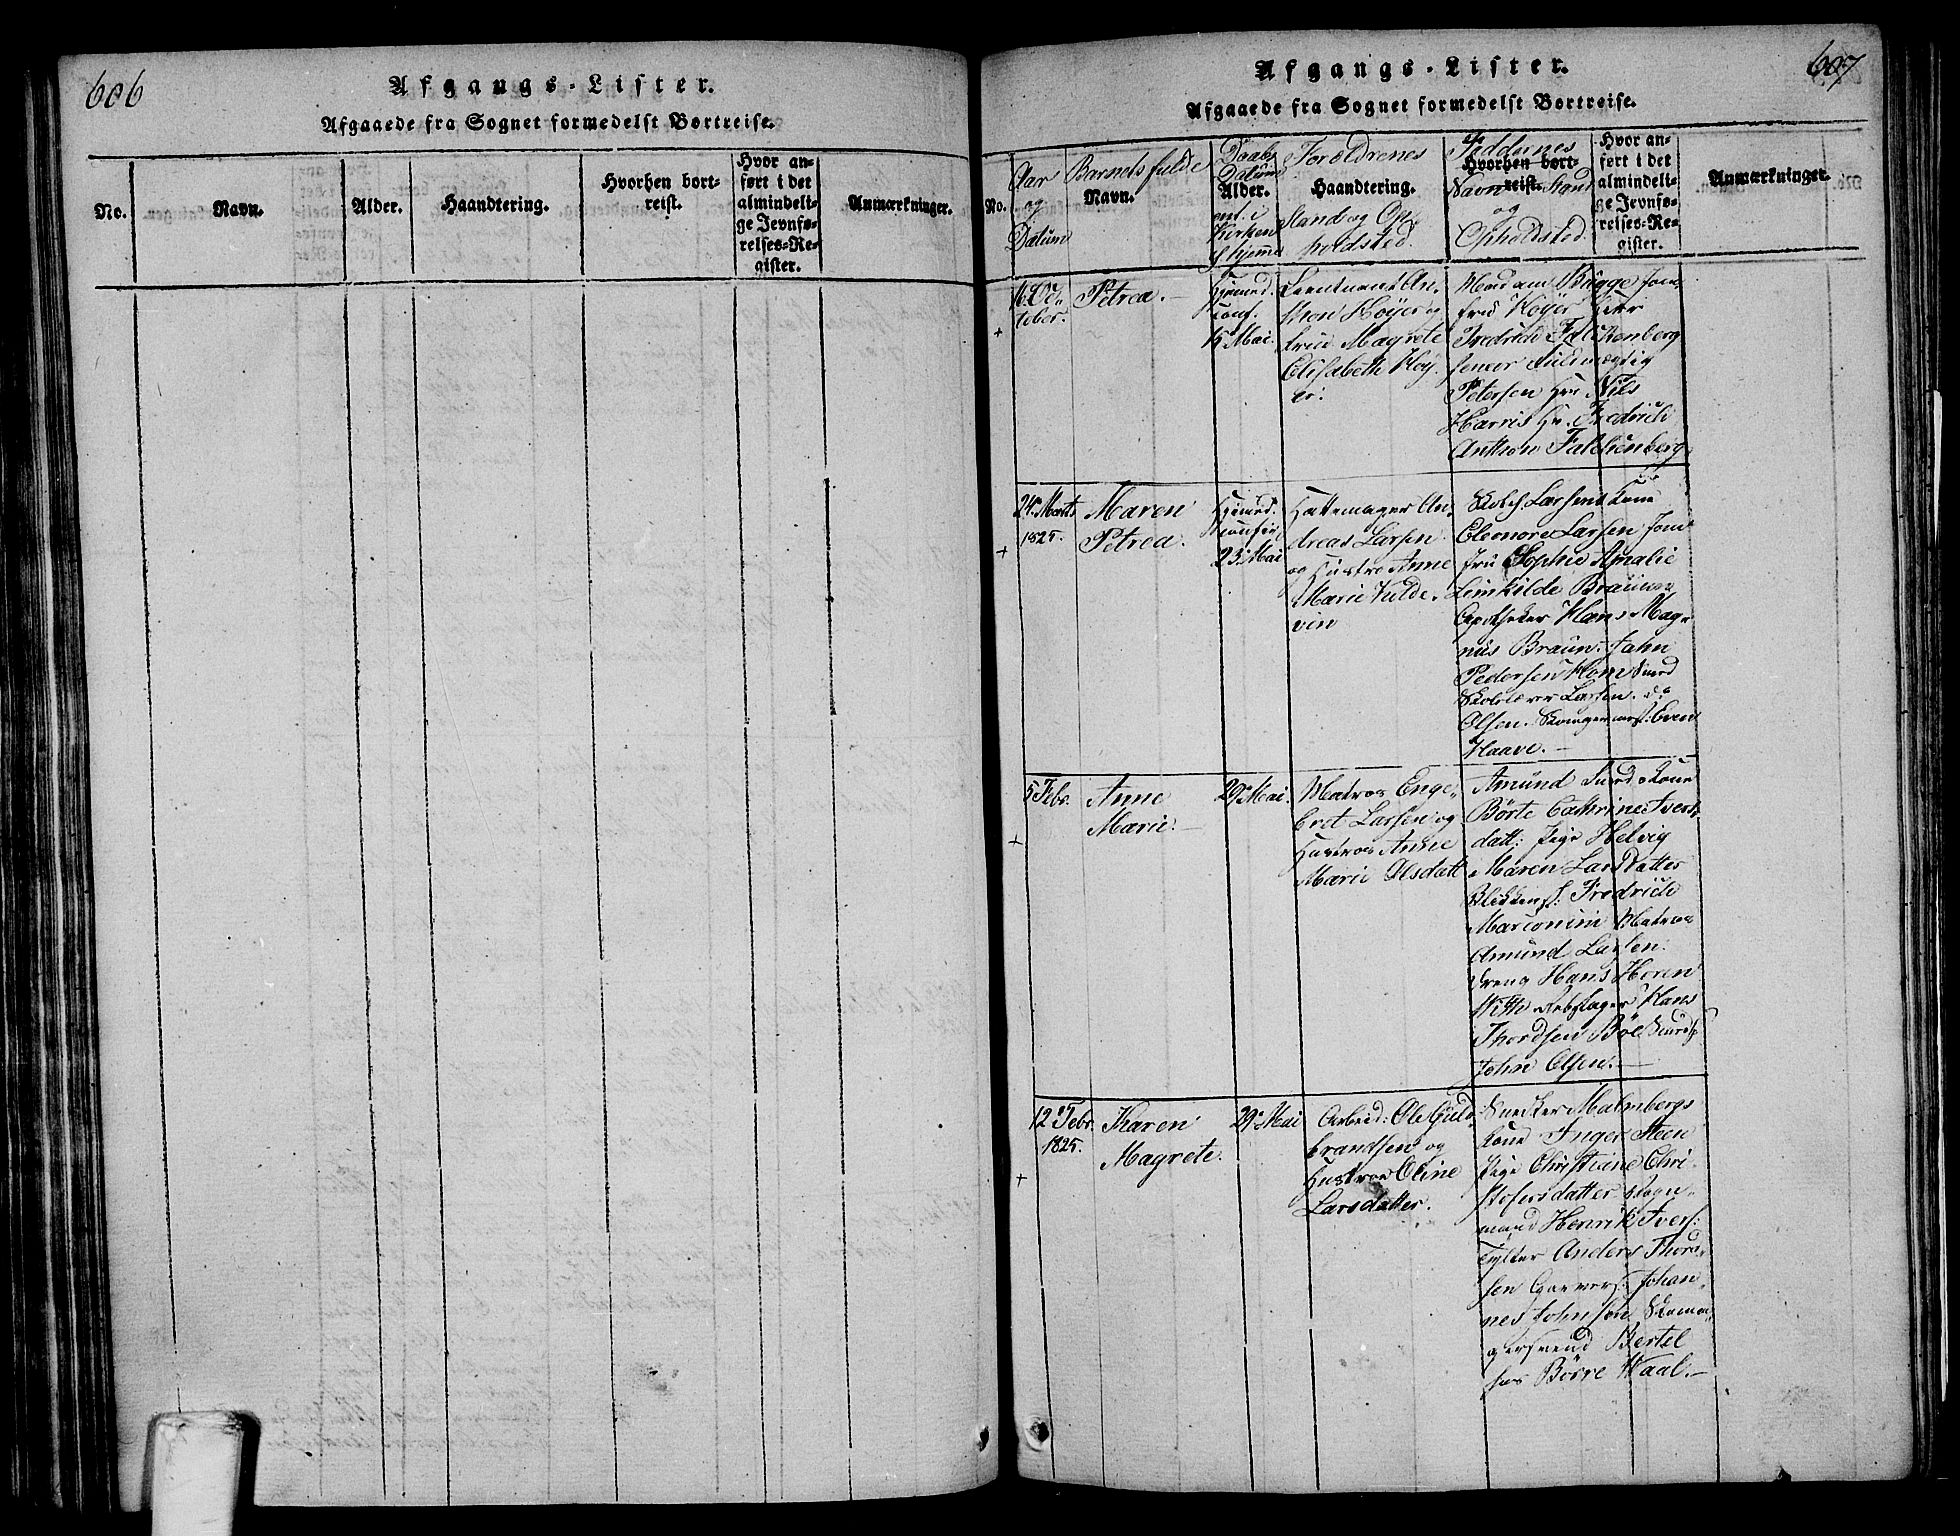 606
Afgangs-Lister.
Afgaaede fra Sognet formedelst Bortreise.
No.
Navn.
Alder.
Haandtering.
Hvorhen bort-
reist.
Hvor an-
ført i det
almindeli-
ge Jevnfø-
relses-Re-
gister.
Anmærkninger.
607
Afgangs-Lister.
Afgaaede fra Sognet formedelst Bortreise.
No.
Aar
og
Datum
Barnets fulde
Navn.
Daabs
Datum
Alder.
ent. i
Kirken
el. hjemme
Forældrenes
Haandtering.
Stand og Op-
holdsted.
Faddernes
Hvorhen bort-
reist.
Navn Stand
og
Opholdsted.
Hvor an-
ført i det
almindeli-
ge Jevnfø-
relses-Re-
gister.
Anmærkninger.
16 Oc-
tober.
+
Petrea.
Hjemed.
conf.
15 Mai.
Leutnant An-
thon Höyer og
Frue Magrete
Elisabeth Höy-
er.
Madam Bügge Jom-
fru Höyer Herr
Fredrich Falckenberg
senior Fuldmægtig
Petersen Hr. Nils
Harris Hr. Fredrich
Anthon Falchenberg
24 Marts
1825.
+
Maren
Petrea.
Hjemed.
confir.
23 Mai
Hattemager An-
dreas Larsen
og Hustro Anne
Marie Fulde-
vin
Skolel. Larsens Kone
Eleonore Larsen Jom-
fru Sophie Amalie
Linkilde Braun
Apotheker Hans Mag-
nus Braun. John
Pedersen Hom Smed
Skolelærer Larsen.
Olsen. Even
Haave.
5 Febr.
+
Anne
Marie.
29 Mai.
Matros Enge-
bret Larsen og
Hustroe Anne
Marie Olsdatt
Amund Smeds Kone
Börte Cathrine Ivers-
datt: Pige Helvig
Maren Larsdatter
Blikkensl. Fredrich
Marconini Matros
Amund Larsen.
Dreng Hans Horen
With Rebslager Hans
Thordsen Böe
John Olsen.
12 Febr.
1825.
+
Karen
Magrete.
29 Mai
Arbeid: Ole Guld-
brandsen og
Hustroe Oline
Larsdatter.
Snecker Malmbergs
Kone Inger Steen
Pige Christine Chri-
stofersdatter Vogn-
mand Henrik Ivers:
Anders Thord-
sen Garvers: Johan-
nes Johnsen Skoma-
gersvend Bertel
Börre Waal.